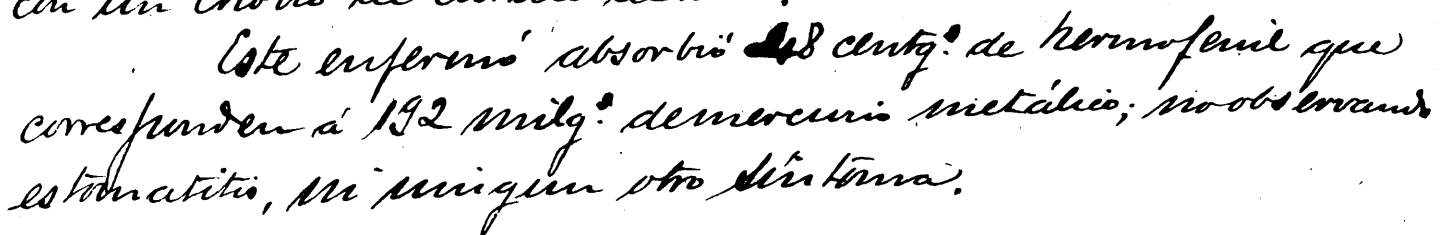 con un
Este enfermó absorbió 48 centgs. de hermofenil que
corresponden á 192 milgs. de mercurio metálico; no observando
estomatitis, ni ningun otro síntoma.